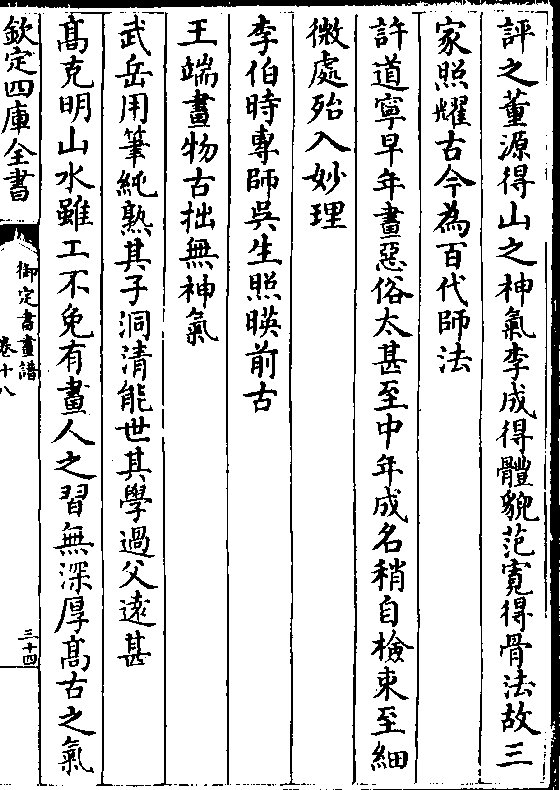 評之董源得山之神氣李成得體貌范寛得骨法故三
家照耀古今為百代師法
許道寧早年畫惡俗太甚至中年成名稍自檢束至細
微處殆入妙理
李伯時專師吳生照暎前古
王端畫物古拙無神氣
武岳用筆純熟其子洞清能世其學過父逺甚
髙克明山水雖工不免有畫人之習無深厚髙古之氣
欽定四庫全書
御定書畫譜
卷十八
三十四